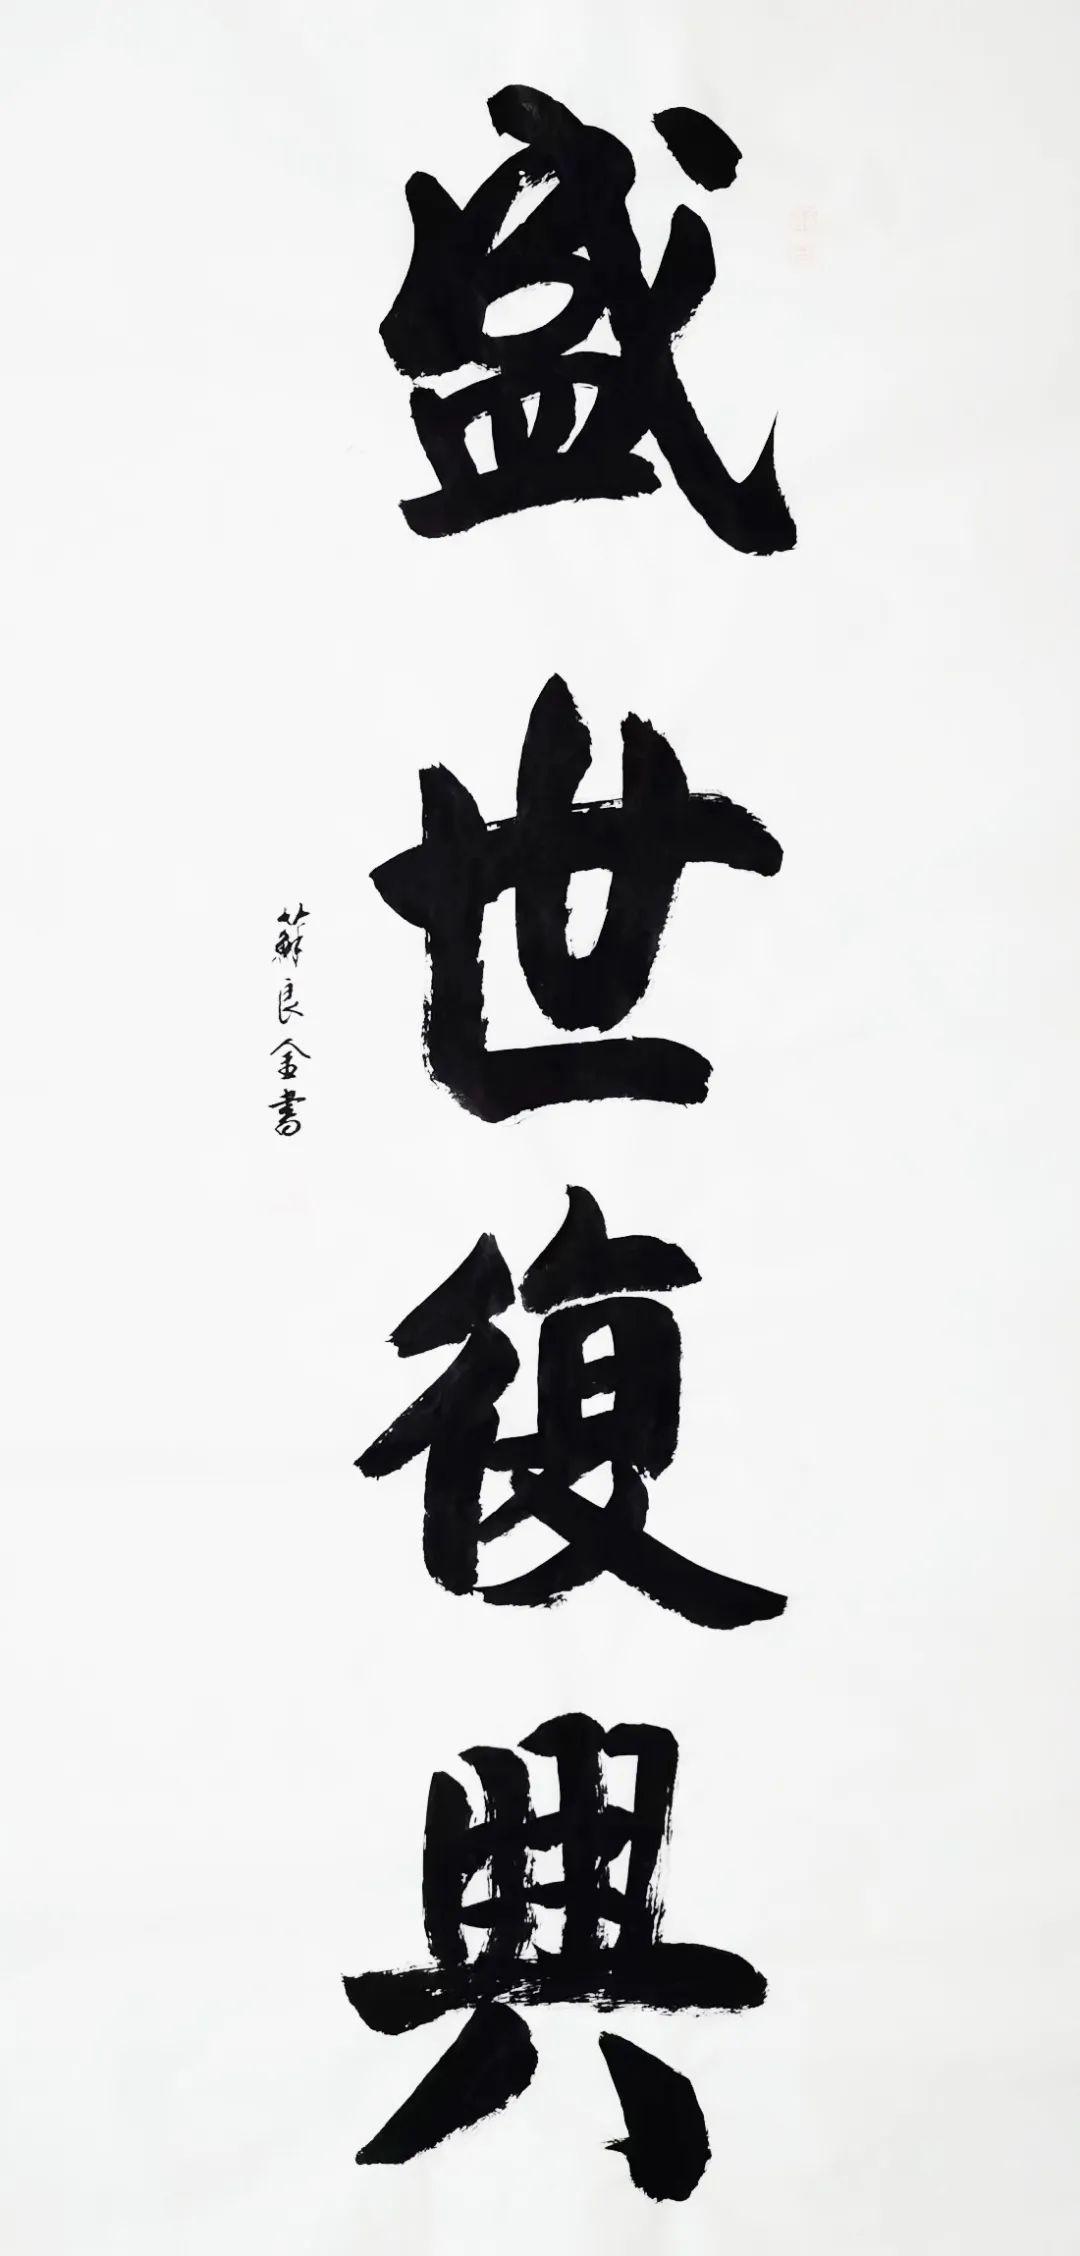 盛世復興
蘇良金書